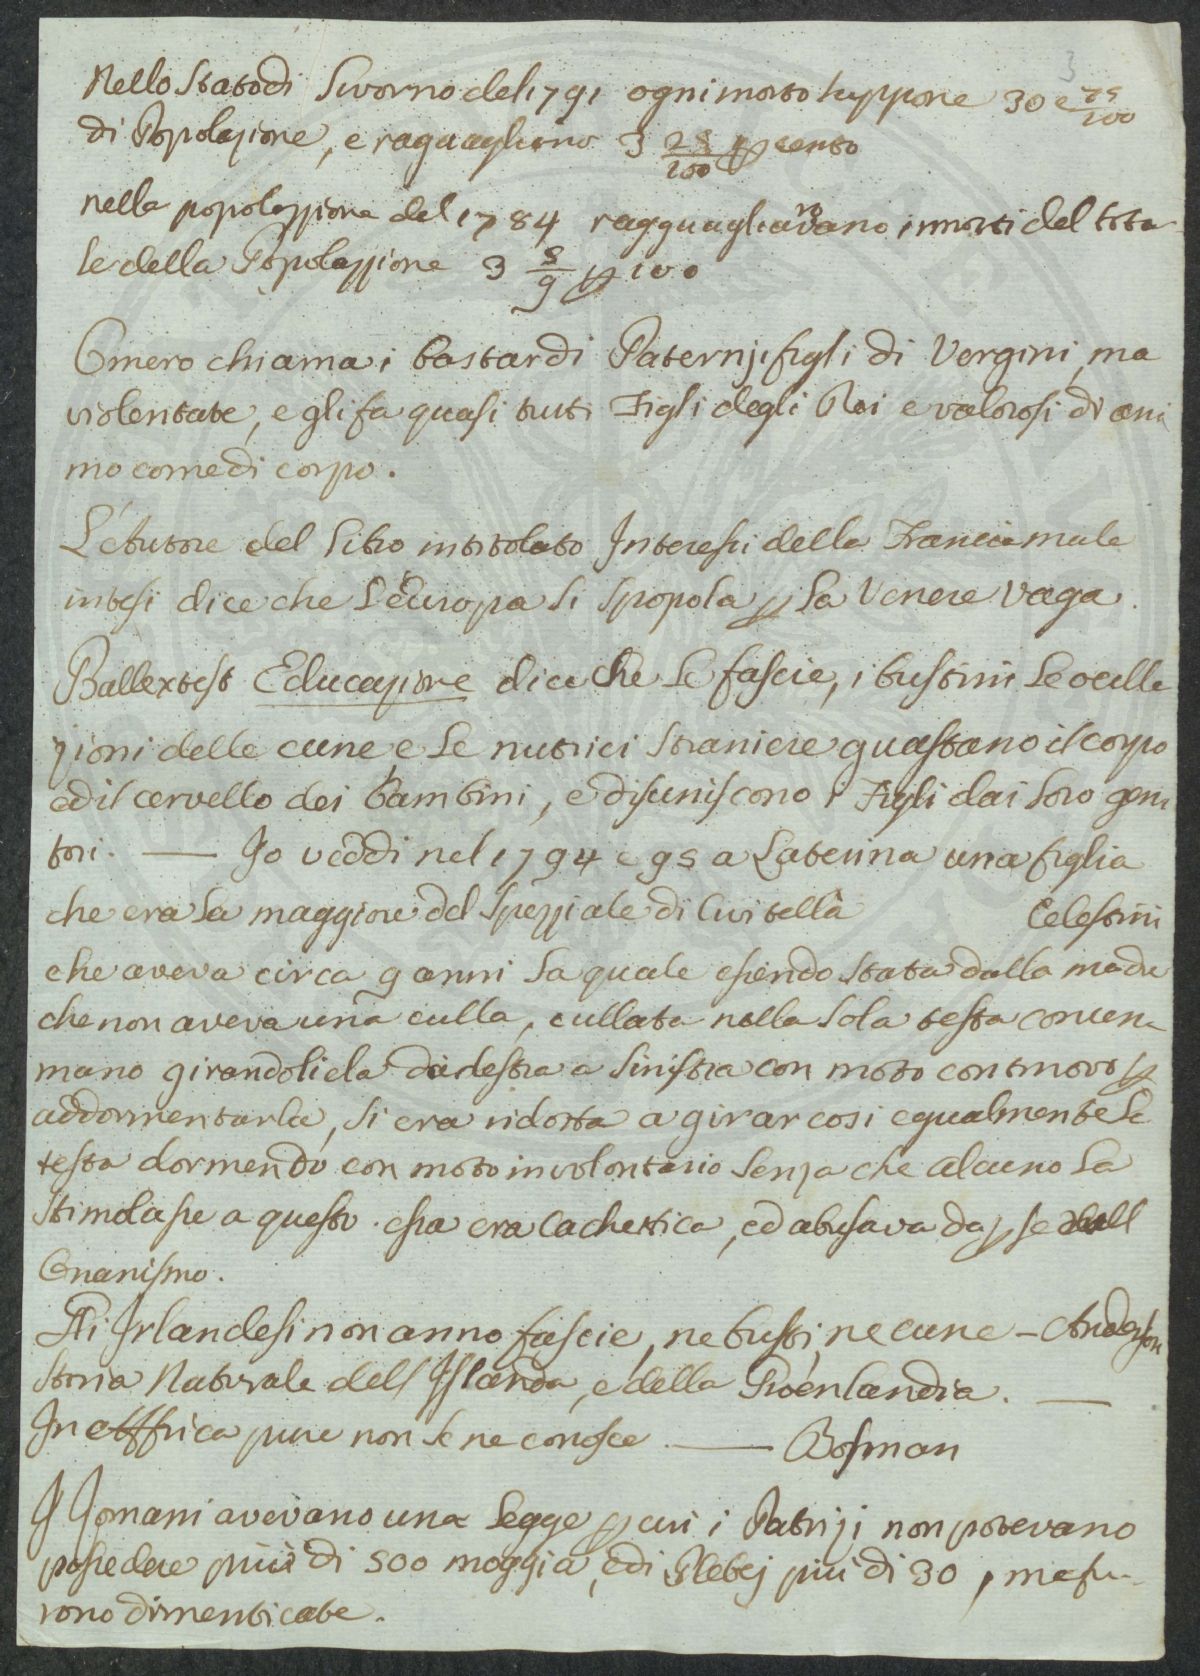 3
Nello Stato di Livorno del 1791 ogni morto suppone 30 e 75/100
di Popolazione, e raguagliono 3 25/100 p cento
nella popolazzione del 1784 ragguagliavano i morti del tota
le della Popolazzione 3 5/9 p 100
Omero chiama i bastardi Paternj, figli di Vergini, ma
violentate, e gli fa quasi tutti Figli degli Rei e valorosi di ani
mo come di corpo.
L'Autore del Libro intitolato Interessi della Francia male
intesi dice che l'Europa si spopola p la Venere vaga.
Ballextest Educazione dice che le fascie, i bustini le ocille
zioni delle cune, e le nutrici straniere guastano il corpo
ed il cervello dei bambini, e disuniscono i Figli dai loro geni
tori. — Io veddi nel 1794 e 95 a Laterina una figlia
che era la maggiore del Speziale di Civitella Celestini
che aveva circa 9 anni la quale essendo stata dalla madre
che non aveva una culla, cullata nella sola testa con una
mano girandoliela da destra a sinistra con moto continovo p
addormentarla, si era ridotta a girar cosi egualmente la
testa dormendo con moto involontario senza che alcuno la
stimolasse a questo. essa era Cachettica, ed abusava da p se dell
Onanismo.
Gli Irlandesi non anno fascie, ne busti, ne cune – Anderson
Storia Naturale dell'Islanda, e della Groenlandia. —
In Affrica pure non se ne conosce. — Bosman
I Romani avevano una legge p cui i Patrizi non potevano
possedere più di 500 moggia, ed i Plebej più di 30, ma fu-
rono dimenticate.